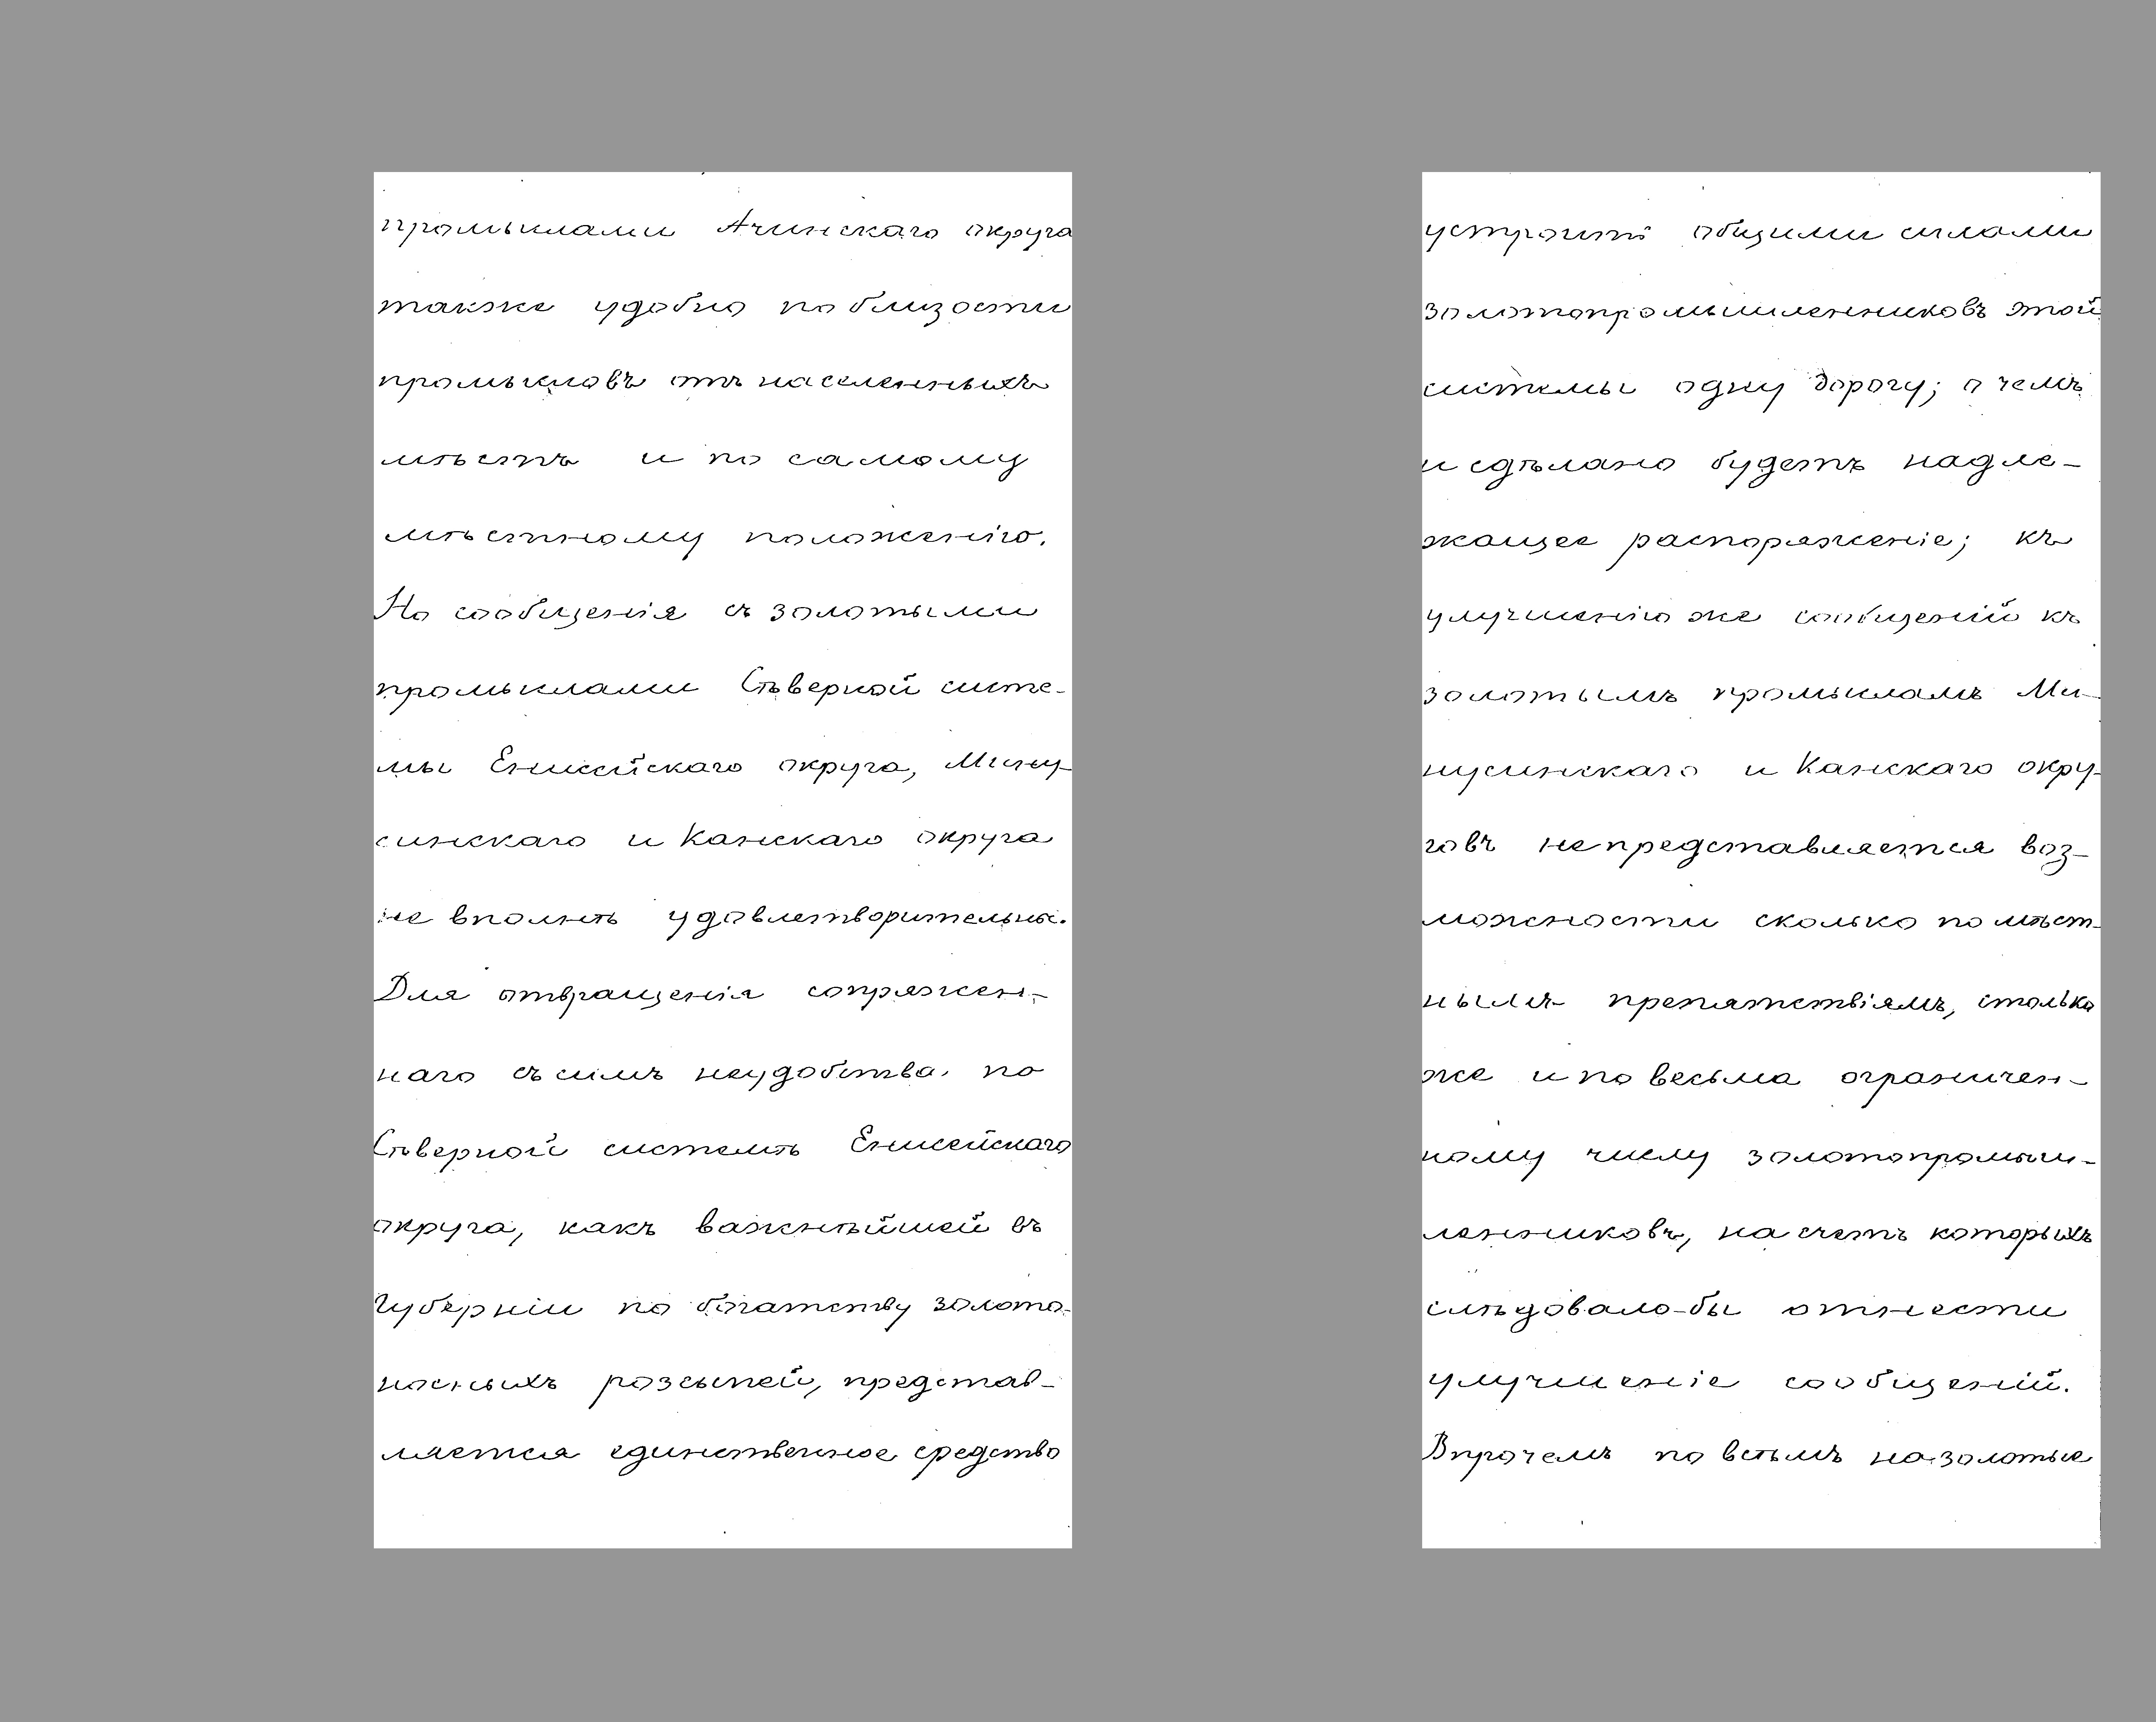 промыслами Ачинскаго округа
также удобно по близости
промысловъ отъ населенныхъ
мѣстъ и по самому
мѣстному положенію.
Но сообщенія съ золотыми
промыслами Сѣверной систе-
мы Енисейскаго округа, Мину-
синскаго и Канскаго округа
не вполнѣ удовлетворительны.
Для отвращенія сопряжен-
наго съ симъ неудобства, по
Сѣверной системѣ Енисейскаго
округа, какъ важнѣйшей въ
Губерніи по богатству золото-
носныхъ розсыпей, представ-
ляется единственное средство
устроить общими силами
золотопромышленниковъ этой
системы одну дорогу; о чемъ
и сдѣлано будетъ надле-
жащее распоряженіе; къ
улучшенію же сообщеній къ
золотымъ промысламъ Ми-
нусинскаго и Канскаго окру-
говъ непредставляется воз-
можности сколько по мѣст-
нымъ препятствіямъ, столько
же и по весьма ограничен-
ному числу золотопромыш-
ленниковъ, на счетъ которыхъ
слѣдовало-бы отнести
улучшеніе сообщеній.
Впрочемъ по всѣмъ на золотые